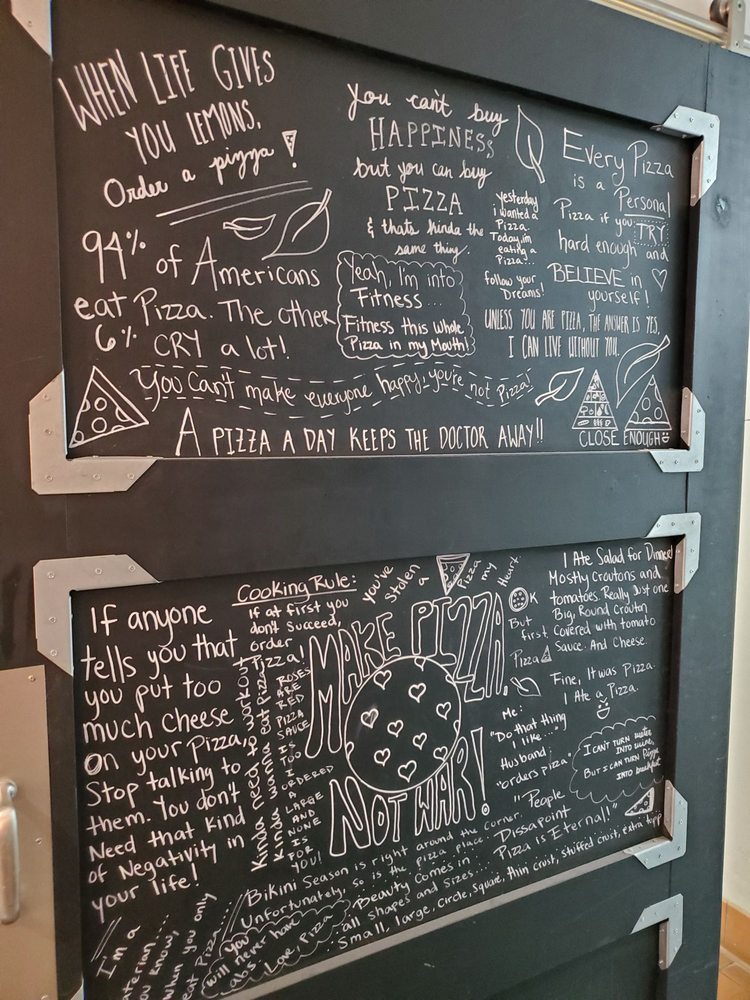 WHEN LIFE GIVES
YOU LEMONS,
Order a pizza!
94% of Americans
eat Pizza. The other
6% CRY a lot!
You can't buy
HAPPINESS
but you can buy
PIZZA
& thats kinda the
same thing.
Yeah, I'm into
Fitness...
Fitness this Whole
Pizza in my Mouth!
yesterday
i wanted a
Pizza.
Today, im
eating a
Pizza...
follow your
Dreams!
Every Pizza
is a Personal
Pizza if you TRY
hard enough and
BELIEVE in
yourself!
UNLESS YOU ARE PIZZA, THE ANSWER IS YES,
I CAN LIVE WITHOUT YOU.
You Can't make everyone happy, you're not Pizza!
A PIZZA A DAY KEEPS THE DOCTOR AWAY!!
CLOSE ENOUGH
If anyone
tells you that
you put too
much Cheese
on your Pizza,
Stop talking to
them. You don't
Need that kind
of Negativity in
your life!
Cooking Rule:
If at first you
don't Succeed,
order
Pizza!
Kinda need to workout
Kinda wanna eat Pizza
ROSES
ARE
RED
PIZZA
SAUCE
IS
TOO
I
ORDERED
A
LARGE
AND
NONE
IS
FOR
YOU!
you've
stolen
a
Pizza
my
Heart.
MAKE PIZZA,
NOT WAR!
OK
But
first
Pizza
I Ate Salad for Dinner!
Mostly Croutons and
tomatoes. Really Just one
Big, Round Crouton
Covered with tomato
Sauce. And Cheese.
Fine, It was Pizza.
I Ate a Pizza.
Me:
"Do that thing
I like..."
Husband:
"orders pizza"
I CAN'T TURN water
INTO wine,
BUT I CAN TURN Pizza
INTO breakfast
"People
Dissapoint
Pizza is Eternal!"
Bikini Season is right around the corner.
Unfortunately, so is the pizza place.
Beauty Comes in
all shapes and sizes...
Small, large, circle, square, thin crust, stuffed crust, extra
you
will never have
abs
Love, Pizza
I'm a
you know,
when you only
eat Pizza